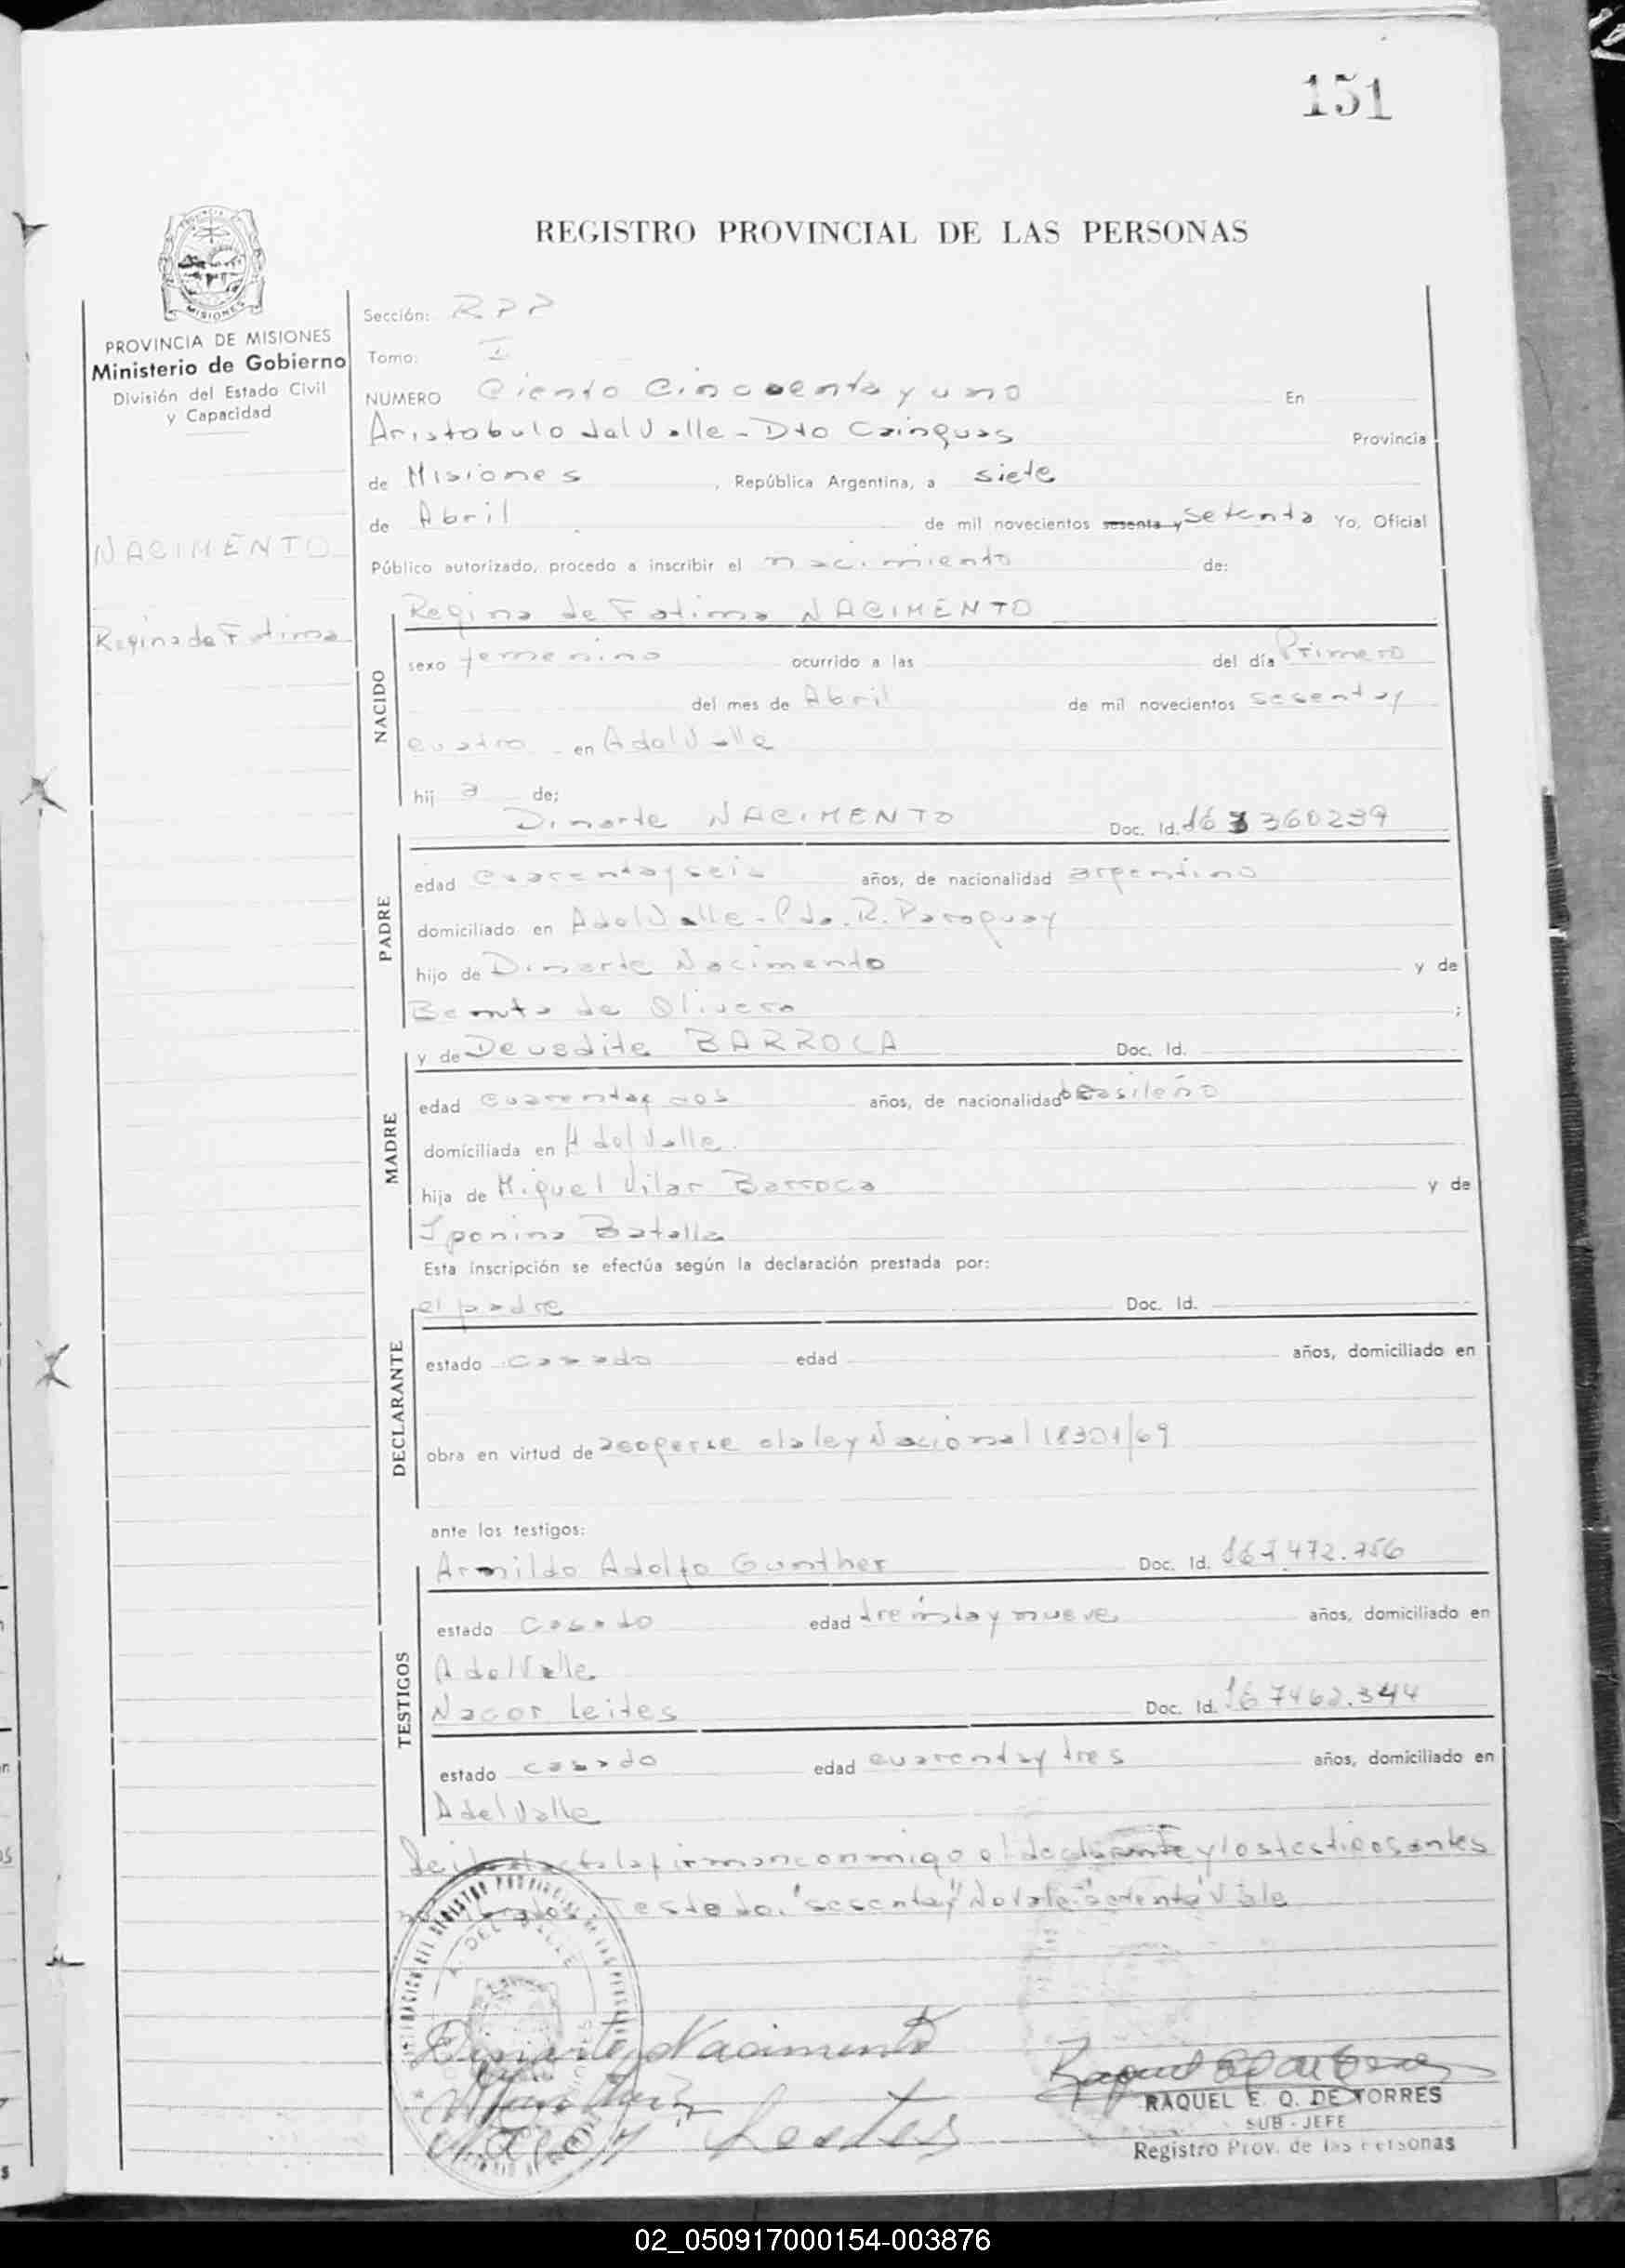 151
REGISTRO PROVINCIAL DE LAS PERSONAS
MISIONES
PROVINCIA DE MISIONES
Ministerio de Gobierno
División del Estado Civil
y Capacidad
NACIMENTO
Regina de Fatima
Sección: RPP
Tomo: I
NUMERO Ciento Cincuenta y uno En
Aristobulo del Valle - Dto Cainguas Provincia
de Misiones , República Argentina, a siete
de Abril de mil novecientos sesenta y setenta Yo, Oficial
Público autorizado, procedo a inscribir el nacimiento de:
NACIDO
Regina de Fatima NACIMENTO
sexo femenino ocurrido a las del día Primero
del mes de Abril de mil novecientos sesenta y
cuatro en A del Valle
hij a de;
PADRE
Dinarte NACIMENTO Doc. Id. 360239
edad cuarenta y seis años, de nacionalidad argentino
domiciliado en A del Valle - Pdo. R. Paraguay
hijo de Dinarte Nacimento y de
Benta de Olivera ;
MADRE
y de Deusdite BARROCA Doc. Id.
edad cuarenta y dos años, de nacionalidad brasileño
domiciliada en A del Valle
hija de Miguel Vilar Barroca y de
Iponina Batalla
Esta inscripción se efectúa según la declaración prestada por:
DECLARANTE
el padre Doc. Id.
estado casado edad años, domiciliado en
obra en virtud de acogerse a la ley Nacional 18301/69
ante los testigos:
TESTIGOS
Armildo Adolfo Gunther Doc. Id. 167.472.756
estado Casado edad treinta y nueve años, domiciliado en
A del Valle
Nacor Leites Doc. Id. 167462.344
estado casado edad cuarenta y tres años, domiciliado en
A del Valle
Leida el acta la firman conmigo el declarante y los testigos antes
Testado. "sesenta y" No vale "setenta" Vale
DEL VALLE
Dinarte Nacimento
Leites
RAQUEL E. Q. DE TORRES
SUB - JEFE
Registro Prov. de las Personas
02_050917000154-003876